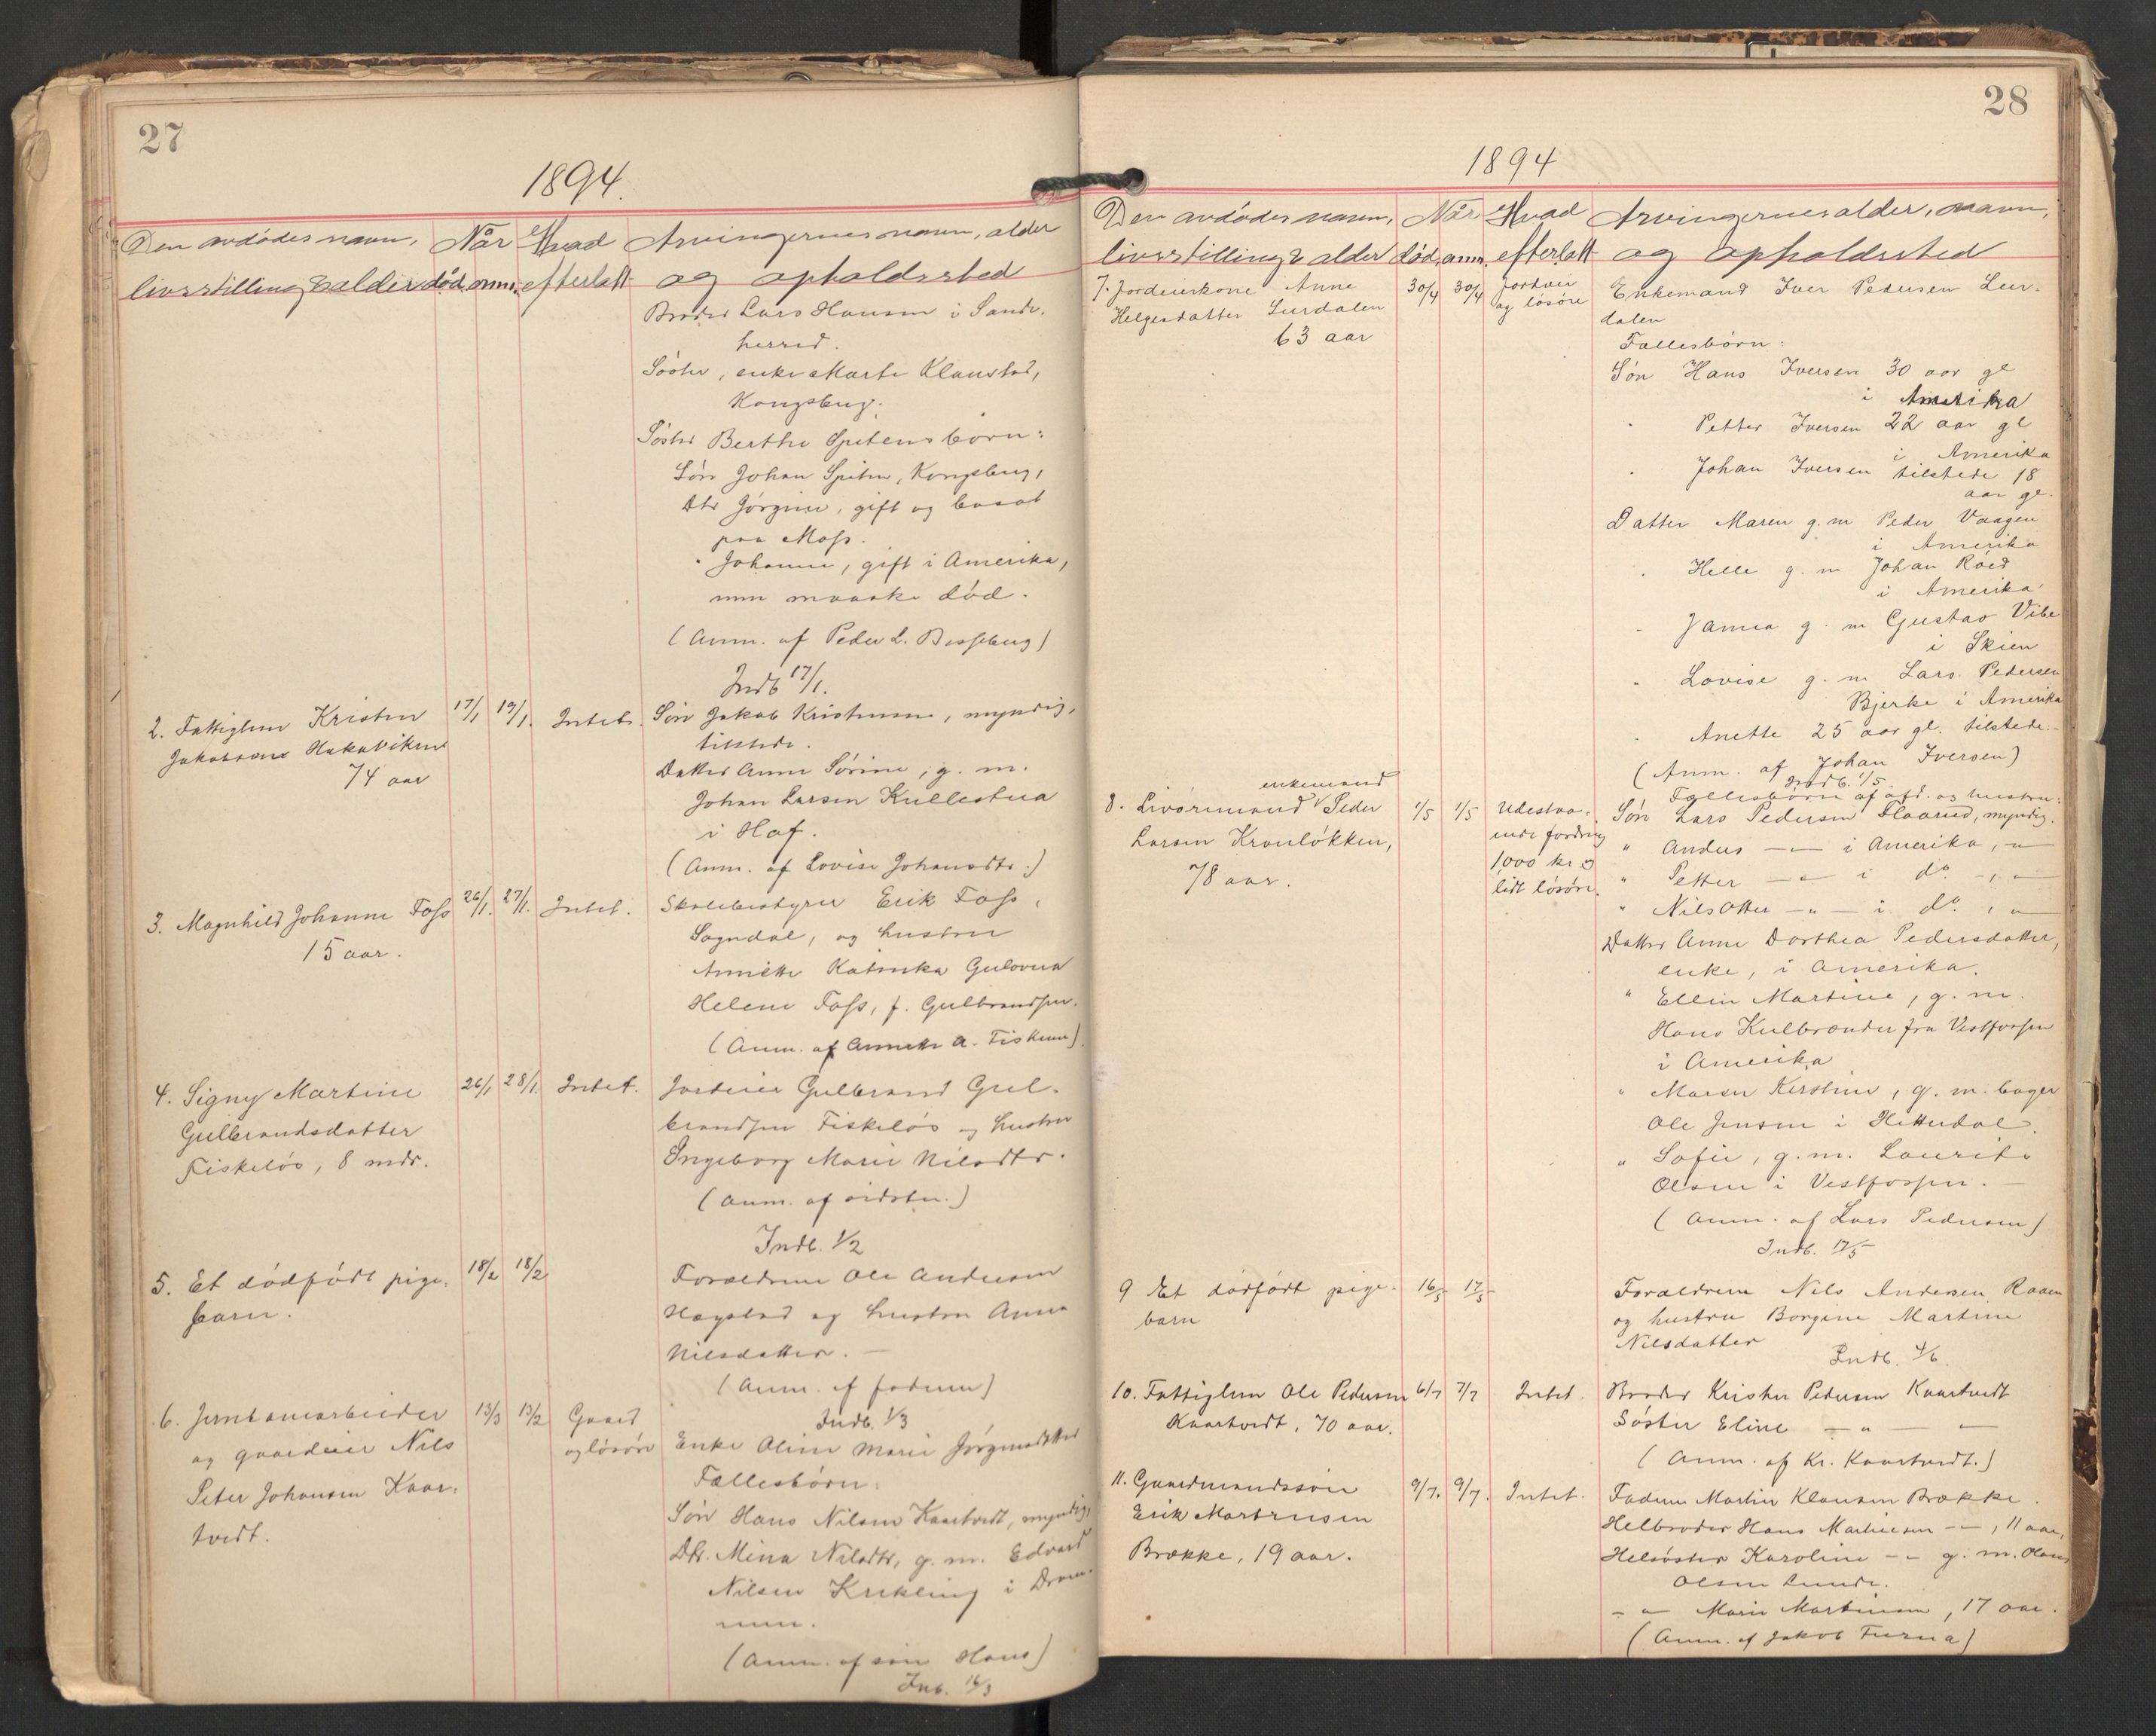 27
1894.
Den avdødes navn, Når Hvad Arvingernes navn, alder
livsstilling & alder død, anm. efterlatt og opholdssted
Broder Lars Hansen i Sande-
herred.
Søster, enke Marte Klaustad,
Kongsberg.
Søster Berthe Spitens børn:
Søn Johan Spiten, Kongsberg,
Dtr Jørgine, gift og bosat
paa Moss.
" Johanne, gift i Amerika,
men maaske død.
(Anm. af Peder L. Bessebergs)
Indb 17/1.
2. Fattiglem Kristen 17/1 19/1. Intet. Søn Jakob Kristensen, myndig,
Jakobsen Hakaviken tilstede.
74 aar Datter Anne Sørine, g. m.
Johan Larsen Kullestua
i Hof.
(Anm. af Lovise Johansdtr.)
3. Magnhild Johanne Foss 26/1. 27/1. Intet. Skolebestyrer Erik Foss,
15 aar. Sogndal, og hustru
Annette Katinka Gulovna
Helene Foss, f. Gulbrandsen.
(Anm. af Annette A. Fiskum).
4. Signy Martine 26/1 28/1. Intet. Jordeier Gulbrand Gul-
Gulbrandsdatter brandsen Fiskeløs og hustru
Fiskeløs, 8 mdr. Ingeborg Marie Nilsdtr.
(Anm. af sidstn.)
Indb. 1/2
5. Et dødfødt pige- 18/2 18/2 Forældrene Ole Andersen
barn. Hagstad og hustru Anna
Nilsdatter. —
(Anm. af faderen)
Indb. 1/3
6. Jernbanearbeider 13/3 13/2 Gaard Enke Oline Marie Jørgensdatter
og gaardeier Nils og løsøre Fællesbørn:
Peter Johansen Kaar- Søn Hans Nilsen Kaartvedt, myndig,
tvedt. Dtr. Mina Nilsdtr, g. m. Edvard
Nilsen Krekling i Dram-
men.
(Anm. af søn Hans)
Inb. 16/3
28
1894
Den avdødes navn, Når Hvad Arvingernes alder, navn,
livsstilling & alder død, anm. efterlatt og opholdssted
7. Jordeierkone Anne 30/4 30/4 Jordvei Enkemand Iver Pedersen Lur-
Helgesdatter Lurdalen og løsøre dalen
63 aar Fællesbørn:
Søn Hans Iversen 30 aar gl
i Amerika
" Petter Iversen 22 aar gl
i Amerika
" Johan Iversen tilstede 18
aar gl.
Datter Maren g. m Peder Vaagen
i Amerika
" Helle g. m Johan Röed
i Amerika
" Janna g. m Gustav Vibe
i Skien
" Lovise g. m Lars Pedersen
Bjerke i Amerika
" Anette 25 aar gl. tilstede.
(Anm. af Johan Iversen)
Indb. 1/5
enkemand Fællesbørn af afd. og hustru:
8. Livøremand Peder 1/5 1/5 Udestaa- Søn Lars Pedersen Flaarud, myndig.
Larsen Kronløkken, ende fordring " Anders — " — i Amerika, "
78 aar. 1000 kr og " Petter — " — i do —, "
lidt løsøre. " Nils Otter — " — i do, "
Datter Anne Dorthea Pedersdatter,
enke, i Amerika.
" Ellin Martine, g. m.
Hans Kulbrander fra Vestfossen
i Amerika
" Maren Kirstine, g. m. bager
Ole Jensen i Hitterdal.
" Sofie, g. m. Laurits
Olsen i Vestfossen. —
(Anm. af Lars Pedersen)
Indb. 17/5
9 Et dødfødt pige- 16/5 17/5 Forældrene Nils Andersen Raaen
barn og hustru Borgine Martine
Nilsdatter
Indb. 4/6.
10. Fattiglem Ole Pedersen 6/7 7/7 Intet. Broder Krister Pedersen Kaartvedt
Kaartvedt, 70 aar. Søster Eline — " — "
(Anm. af Kr. Kaartvedt.)
11. Gaardmandssøn 9/7. 9/7. Intet. Faderen Martin Klausen Brække.
Erik Martinsen Helbroder Hans Martinsen — " —, 11 aar,
Brække, 19 aar. Helsøster Karoline — " g. m. Hans
Olsen Lunde.
— " — Marie Martinsen, 17 aar.
(Anm. af Jakob Furua)